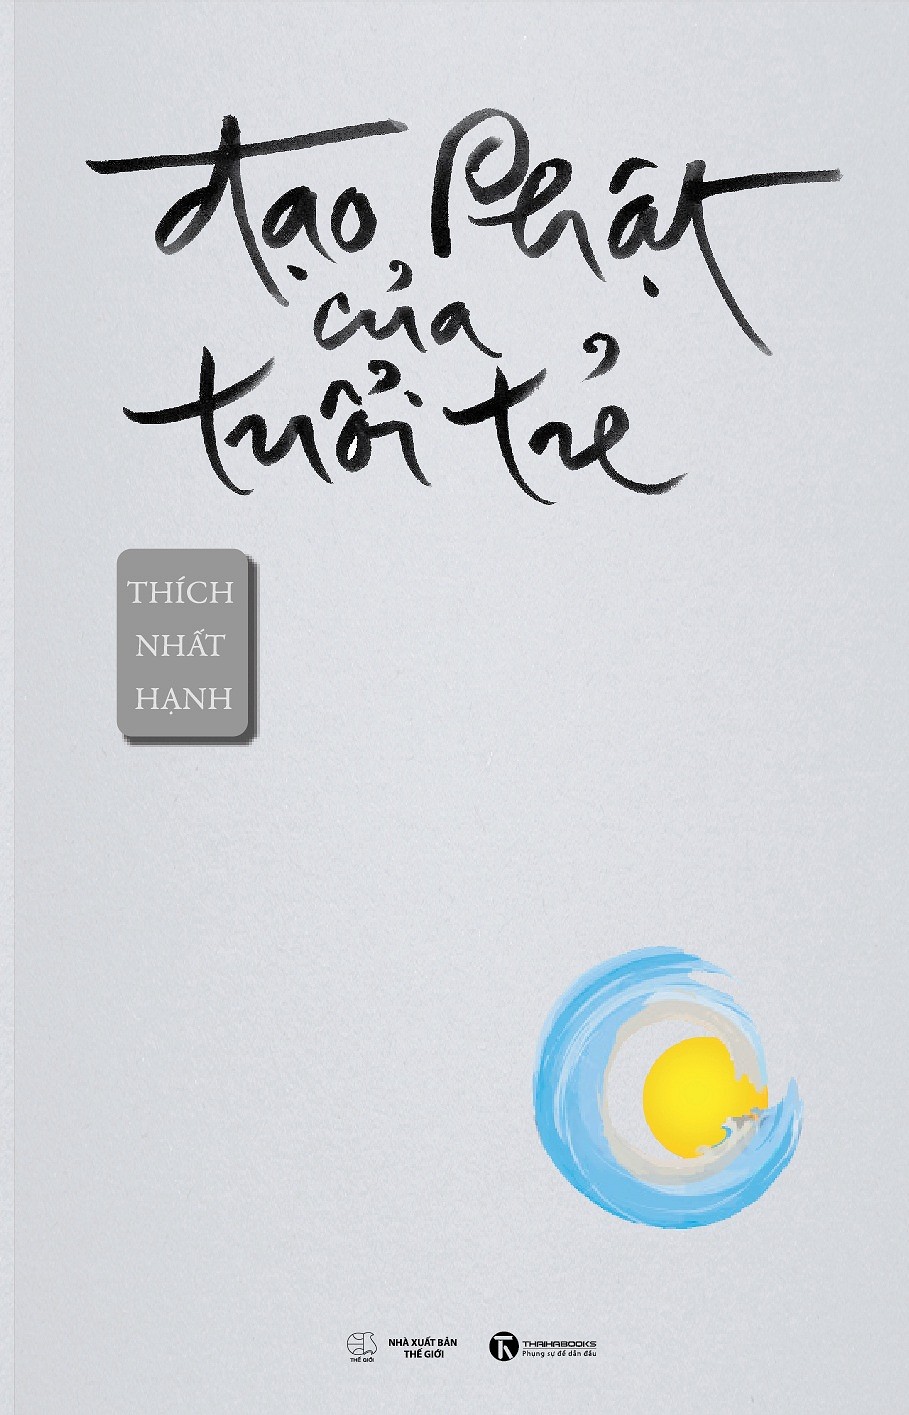 đạo Phật
của
tuổi trẻ
THÍCH
NHẤT
HẠNH
THẾ GIỚI
NHÀ XUẤT BẢN
THẾ GIỚI
THAIHABOOKS
Phụng sự để dẫn đầu